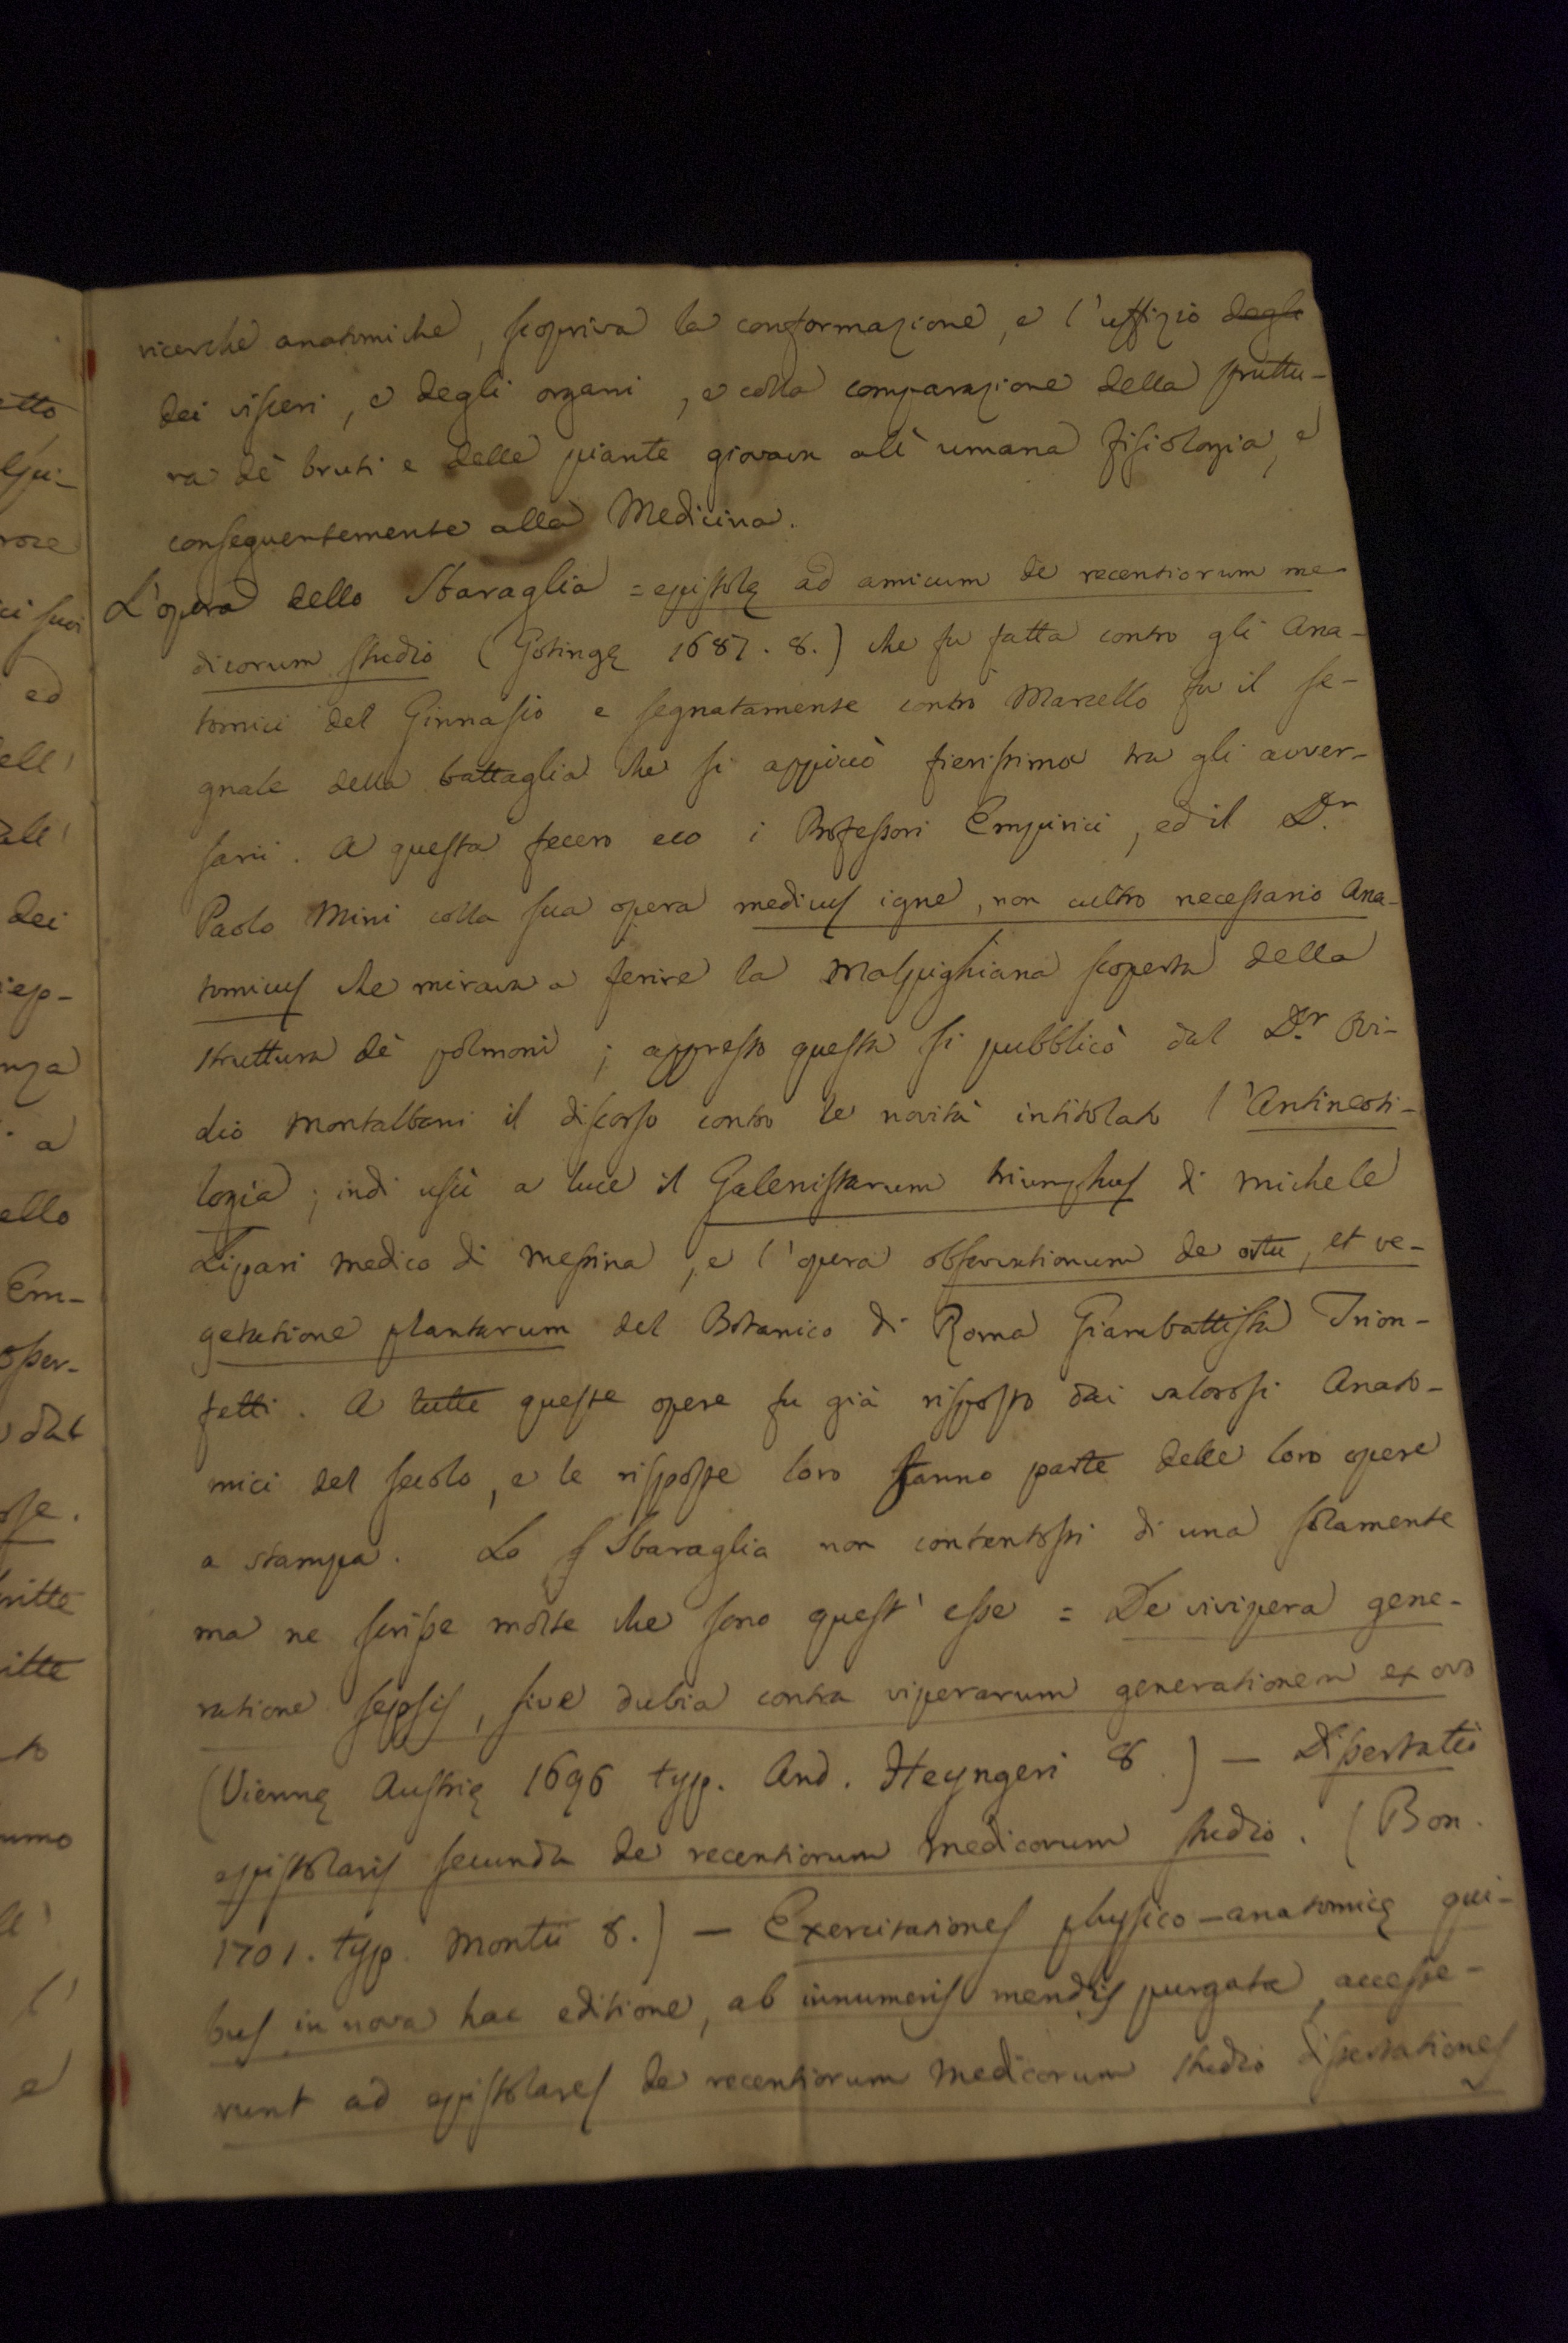 ricerche anatomiche, scopriva la conformazione, e l'uffizio degli
dei visceri, e degli organi, e colla comparazione della struttu-
ra de' bruti e delle piante giovava all'umana fisiologia, e
conseguentemente alla Medicina.
L'opera dello Sbaraglia = epistolę ad amicum de recentiorum me-
dicorum studio (Gotingę 1687. 8.) che fu fatta contro gli Ana-
tomici del Ginnasio e segnatamente contro Marcello fu il se-
gnale della battaglia che si appiccò fierissima tra gli avver-
sarii. A questa fecero eco i Professori Empirici, ed il D.r
Paolo Mini colla sua opera medicus igne, non cultro necessario Ana-
tomicus che mirava a ferire la Malpighiana scoperta della
struttura de' polmoni; appresso questa si pubblicò dal D.r Ovi-
dio Montalbani il discorso contro le novità intitolato l'Antineoti-
logia; indi uscì a luce il Galenistarum triumphus di Michele
Lipari medico di Messina, e l'opera observationum de ortu, et ve-
getatione plantarum del Botanico di Roma Giambattista Trion-
fetti. A tutte queste opere fu già risposto dai valorosi Anato-
mici del secolo, e le risposte loro fanno parte delle loro opere
a stampa. Lo Sbaraglia non contentossi di una solamente
ma ne scrisse molte che sono quest'esse = De vivipera gene-
ratione sepsis, sive dubia contra viperarum generationem ex ovo
(Viennę Austrię 1696 typ. And. Heyngeri 8.) — Dissertatio
epistolaris secunda de recentiorum medicorum studio. (Bon.
1701. typ. Montii 8.) — Exercitationes physico-anatomicę qui-
bus in nova hac editione, ab innumeris mendis purgata, accesse-
runt ad epistolares de recentiorum medicorum studio dissertationes